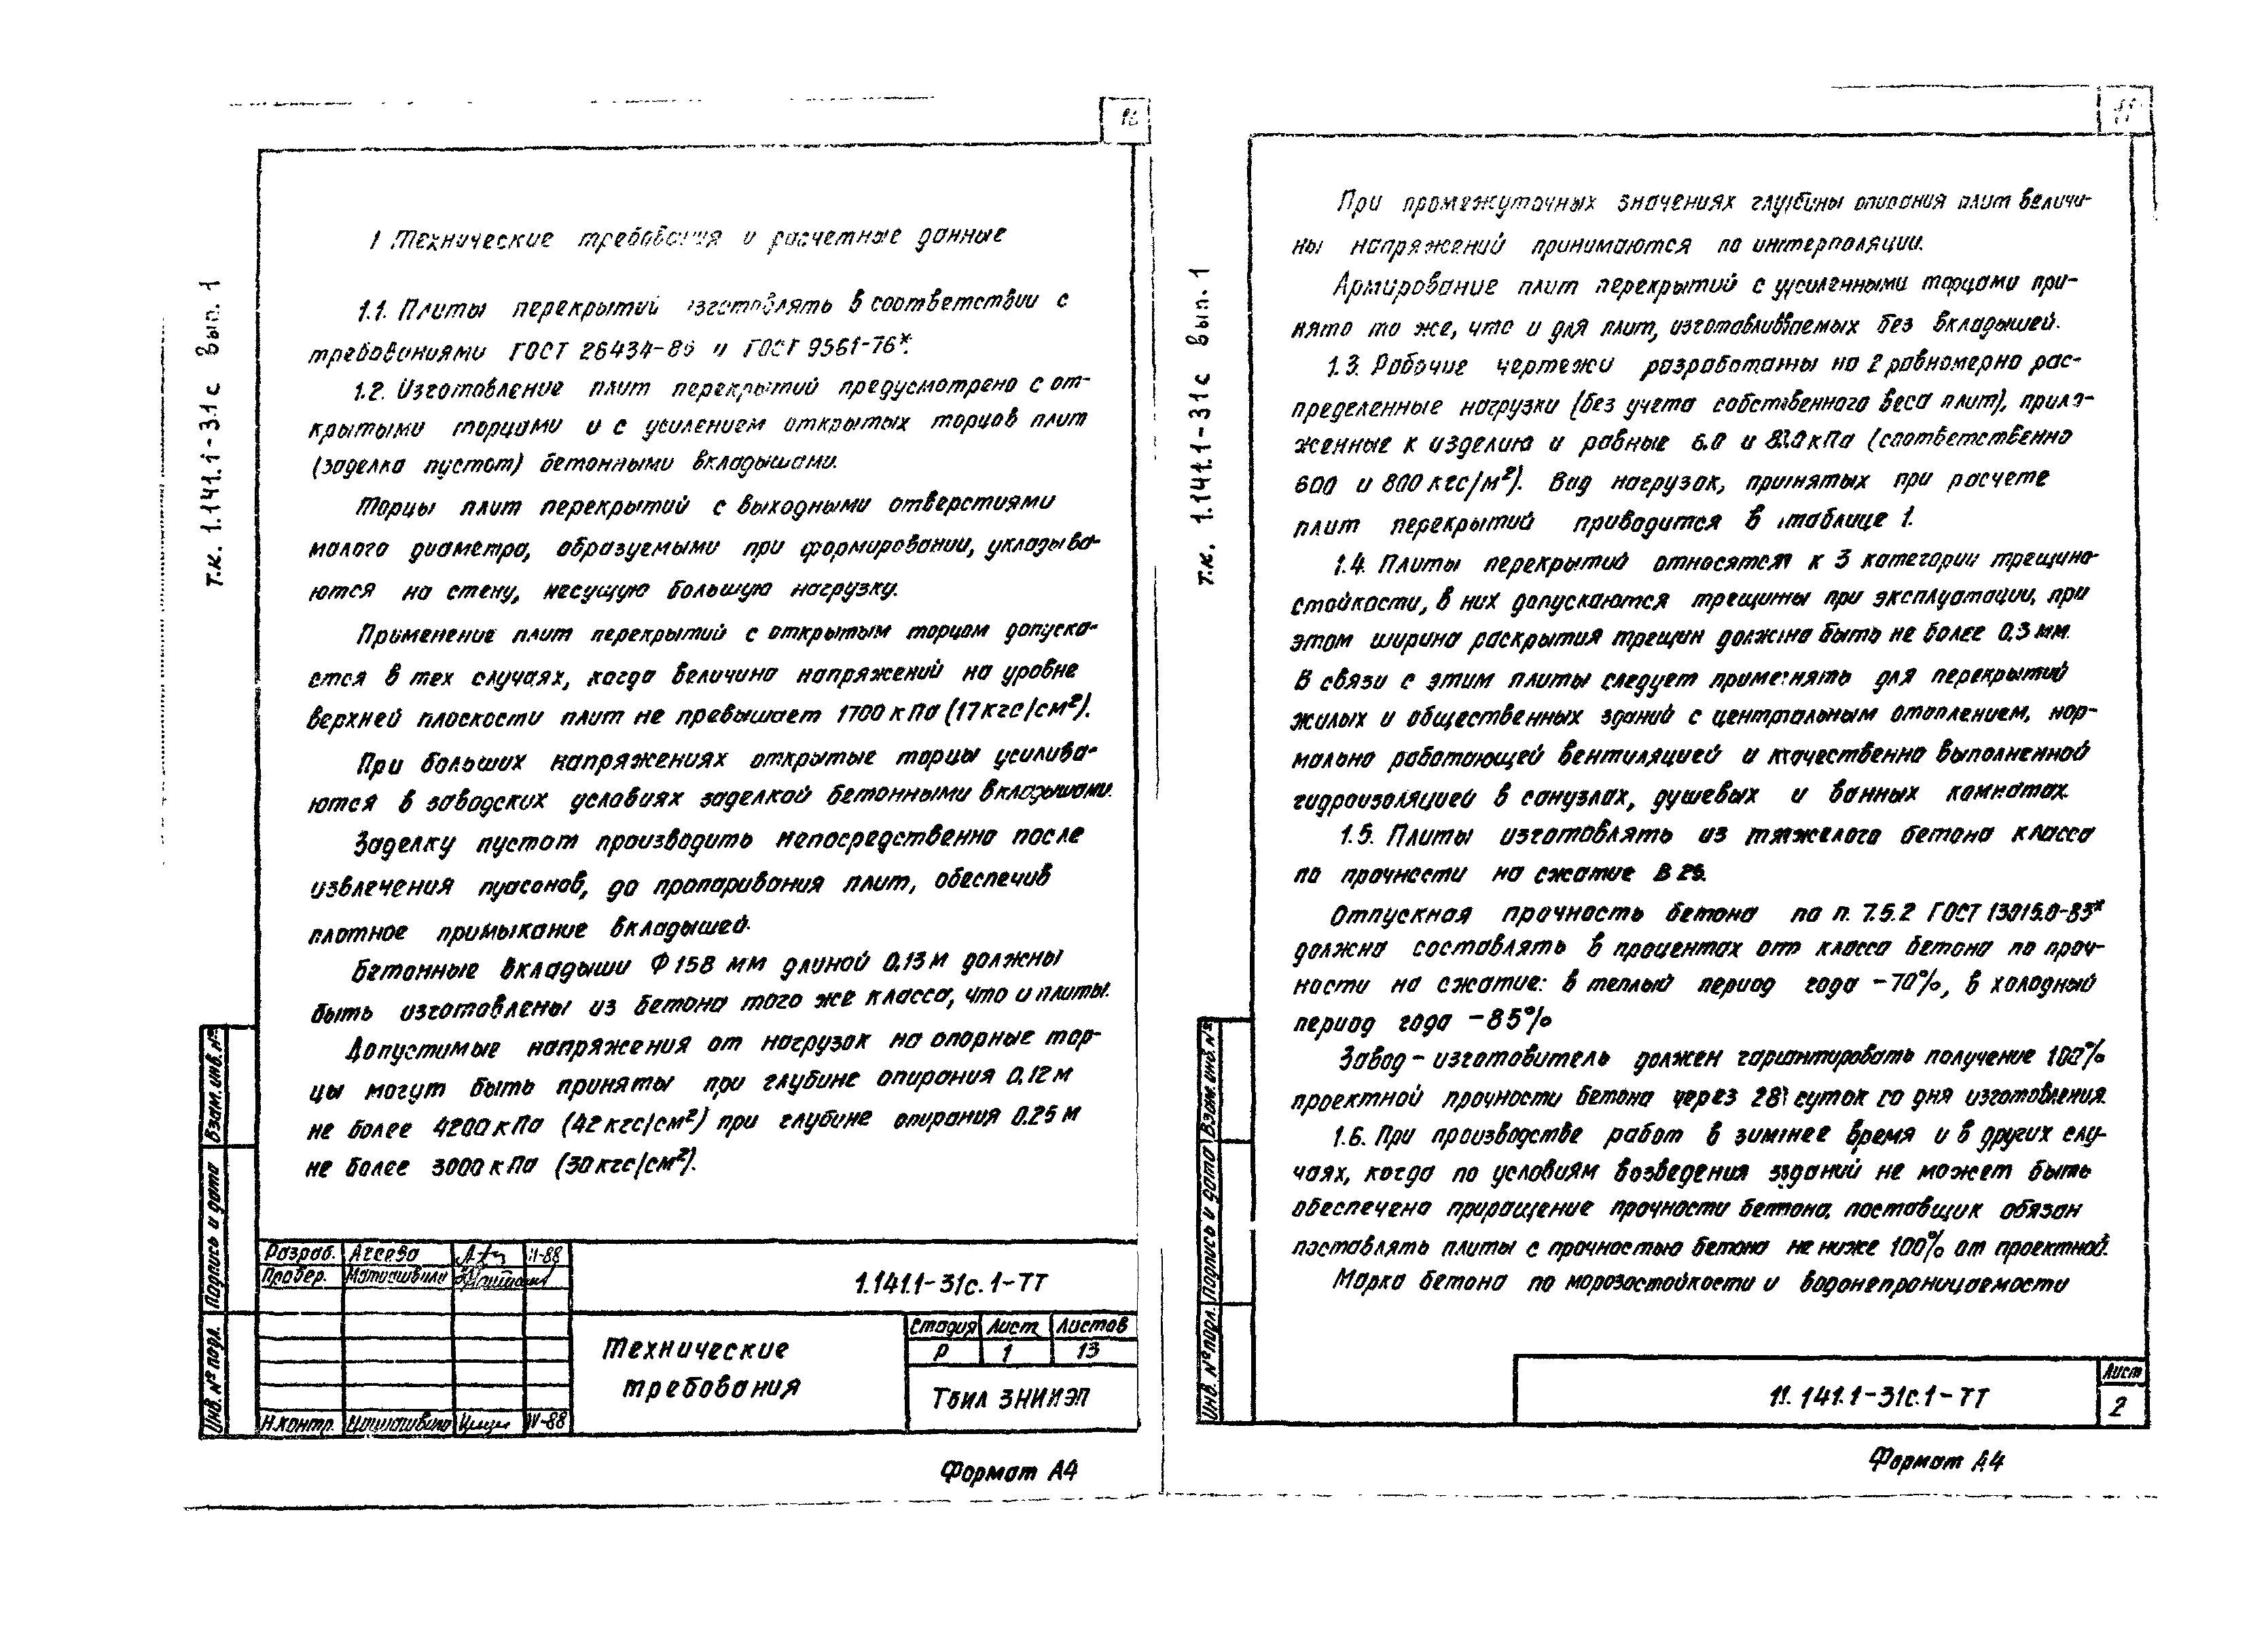 т.к. 1.141.1-31с вып. 1
1 Технические требования и расчетные данные
1.1. Плиты перекрытий изготовлять в соответствии с
требованиями ГОСТ 26434-85 и ГОСТ 9561-76*.
1.2. Изготовление плит перекрытий предусмотрено с от-
крытыми торцами и с усилением открытых торцов плит
(заделка пустот) бетонными вкладышами.
Торцы плит перекрытий с выходными отверстиями
малого диаметра, образуемыми при формировании, укладыва-
ются на стену, несущую большую нагрузку.
Применение плит перекрытий с открытым торцом допуска-
ется в тех случаях, когда величина напряжений на уровне
верхней плоскости плит не превышает 1700 кПа (17кгс/см²).
При больших напряжениях открытые торцы усилива-
ются в заводских условиях заделкой бетонными вкладышами.
Заделку пустот производить непосредственно после
извлечения пуасонов, до пропаривания плит, обеспечив
плотное примыкание вкладышей.
Бетонные вкладыши Ф 158 мм длиной 0.13 м должны
быть изготовлены из бетона того же класса, что и плиты.
Допустимые напряжения от нагрузок на опорные тор-
цы могут быть приняты при глубине опирания 0.12 м
не более 4200 кПа (42 кгс/см²) при глубине опирания 0.25 м
не более 3000 кПа (30 кгс/см²).
Взам. инв. №
Подпись и дата
Инв. № подл.
Разраб. Агеева III-88
Провер. Матиашвили
Н.контр. IV-88
1.141.1-31с.1-ТТ
Технические
требования
Стадия Лист Листов
Р 1 13
ТбилЗНИИЭП
Формат А4
т.к. 1.141.1-31с вып. 1
При промежуточных значениях глубины опирания плит величи-
ны напряжений принимаются по интерполяции.
Армирование плит перекрытий с усиленными торцами при-
нято то же, что и для плит, изготавливаемых без вкладышей.
1.3. Рабочие чертежи разработаны на 2 равномерно рас-
пределенные нагрузки (без учета собственного веса плит), прило-
женные к изделию и равные 6.0 и 8.0 кПа (соответственно
600 и 800 кгс/м²). Вид нагрузок, принятых при расчете
плит перекрытий приводится в таблице 1.
1.4. Плиты перекрытий относятся к 3 категории трещино-
стойкости, в них допускаются трещины при эксплуатации, при
этом ширина раскрытия трещин должна быть не более 0.3 мм.
В связи с этим плиты следует применять для перекрытий
жилых и общественных зданий с центральным отоплением, нор-
мально работающей вентиляцией и качественно выполненной
гидроизоляцией в санузлах, душевых и ванных комнатах.
1.5. Плиты изготовлять из тяжелого бетона класса
по прочности на сжатие В 25.
Отпускная прочность бетона по п. 7.5.2 ГОСТ 13015.0-83*
должна составлять в процентах от класса бетона по проч-
ности на сжатие: в теплый период года - 70%, в холодный
период года - 85%
Завод - изготовитель должен гарантировать получение 100%
проектной прочности бетона через 28 суток со дня изготовления.
1.6. При производстве работ в зимнее время и в других слу-
чаях, когда по условиям возведения зданий не может быть
обеспечено приращение прочности бетона, поставщик обязан
поставлять плиты с прочностью бетона не ниже 100% от проектной.
Марка бетона по морозостойкости и водонепроницаемости
Взам. инв. №
Подпись и дата
Инв. № подл.
1.141.1-31с.1-ТТ
Лист
2
Формат А4